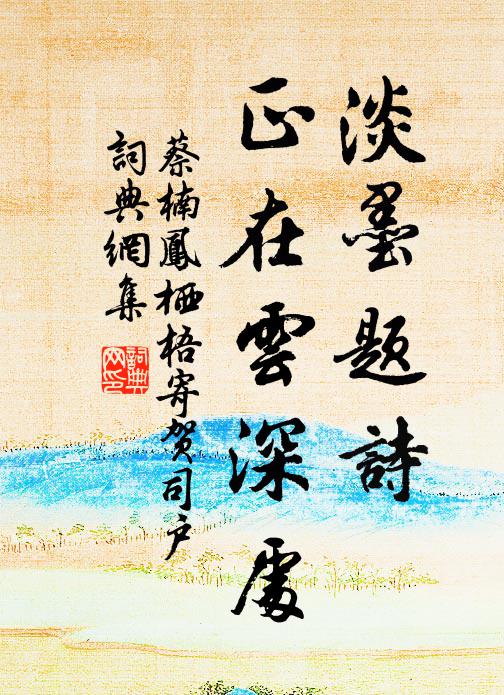 淡墨题詩
正在雲深處
蔡楠鳳栖梧寄贺司户
詞典網集
詞典网印